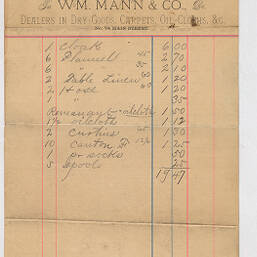 To WM. MANN & CO., Dr.
DEALERS IN DRY GOODS, CARPETS, OIL-CLOTHS, &C.
No. 74 MAIN STREET.
1 Cloak 6 00
6 Flannell 45 2 70
6 " 35 2 10
2 Table Linen 60 1 20
2 Hose 60 1 20
1 " 35
Remnant oilcloth 1 50
1½ oilcloth 1 12
2 65 1 30
10 canton Fl 12½ 1 25
1 pr socks 50
5 Spools 25
19 47